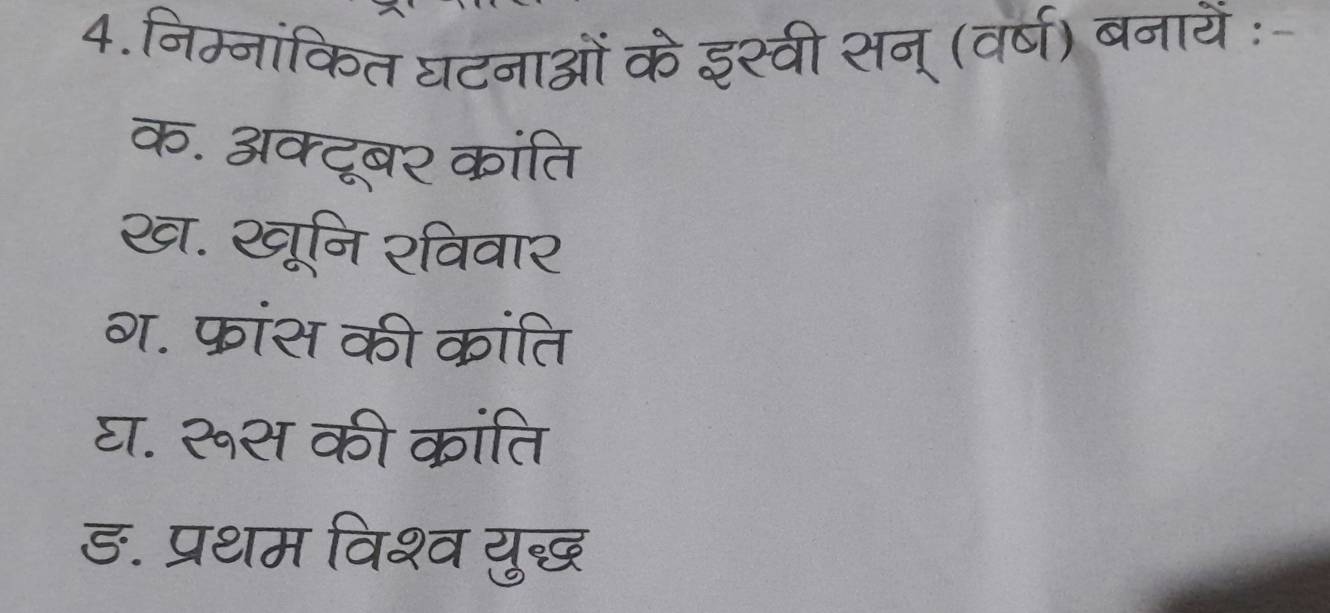 4. निम्नांकित घटनाओं के इस्वी सन् (वर्ष) बनायें :-
क. अक्टूबर क्रांति
ख. खूनि रविवार
ग. फ्रांस की क्रांति
घ. रूस की क्रांति
ङ. प्रथम विश्व युद्ध